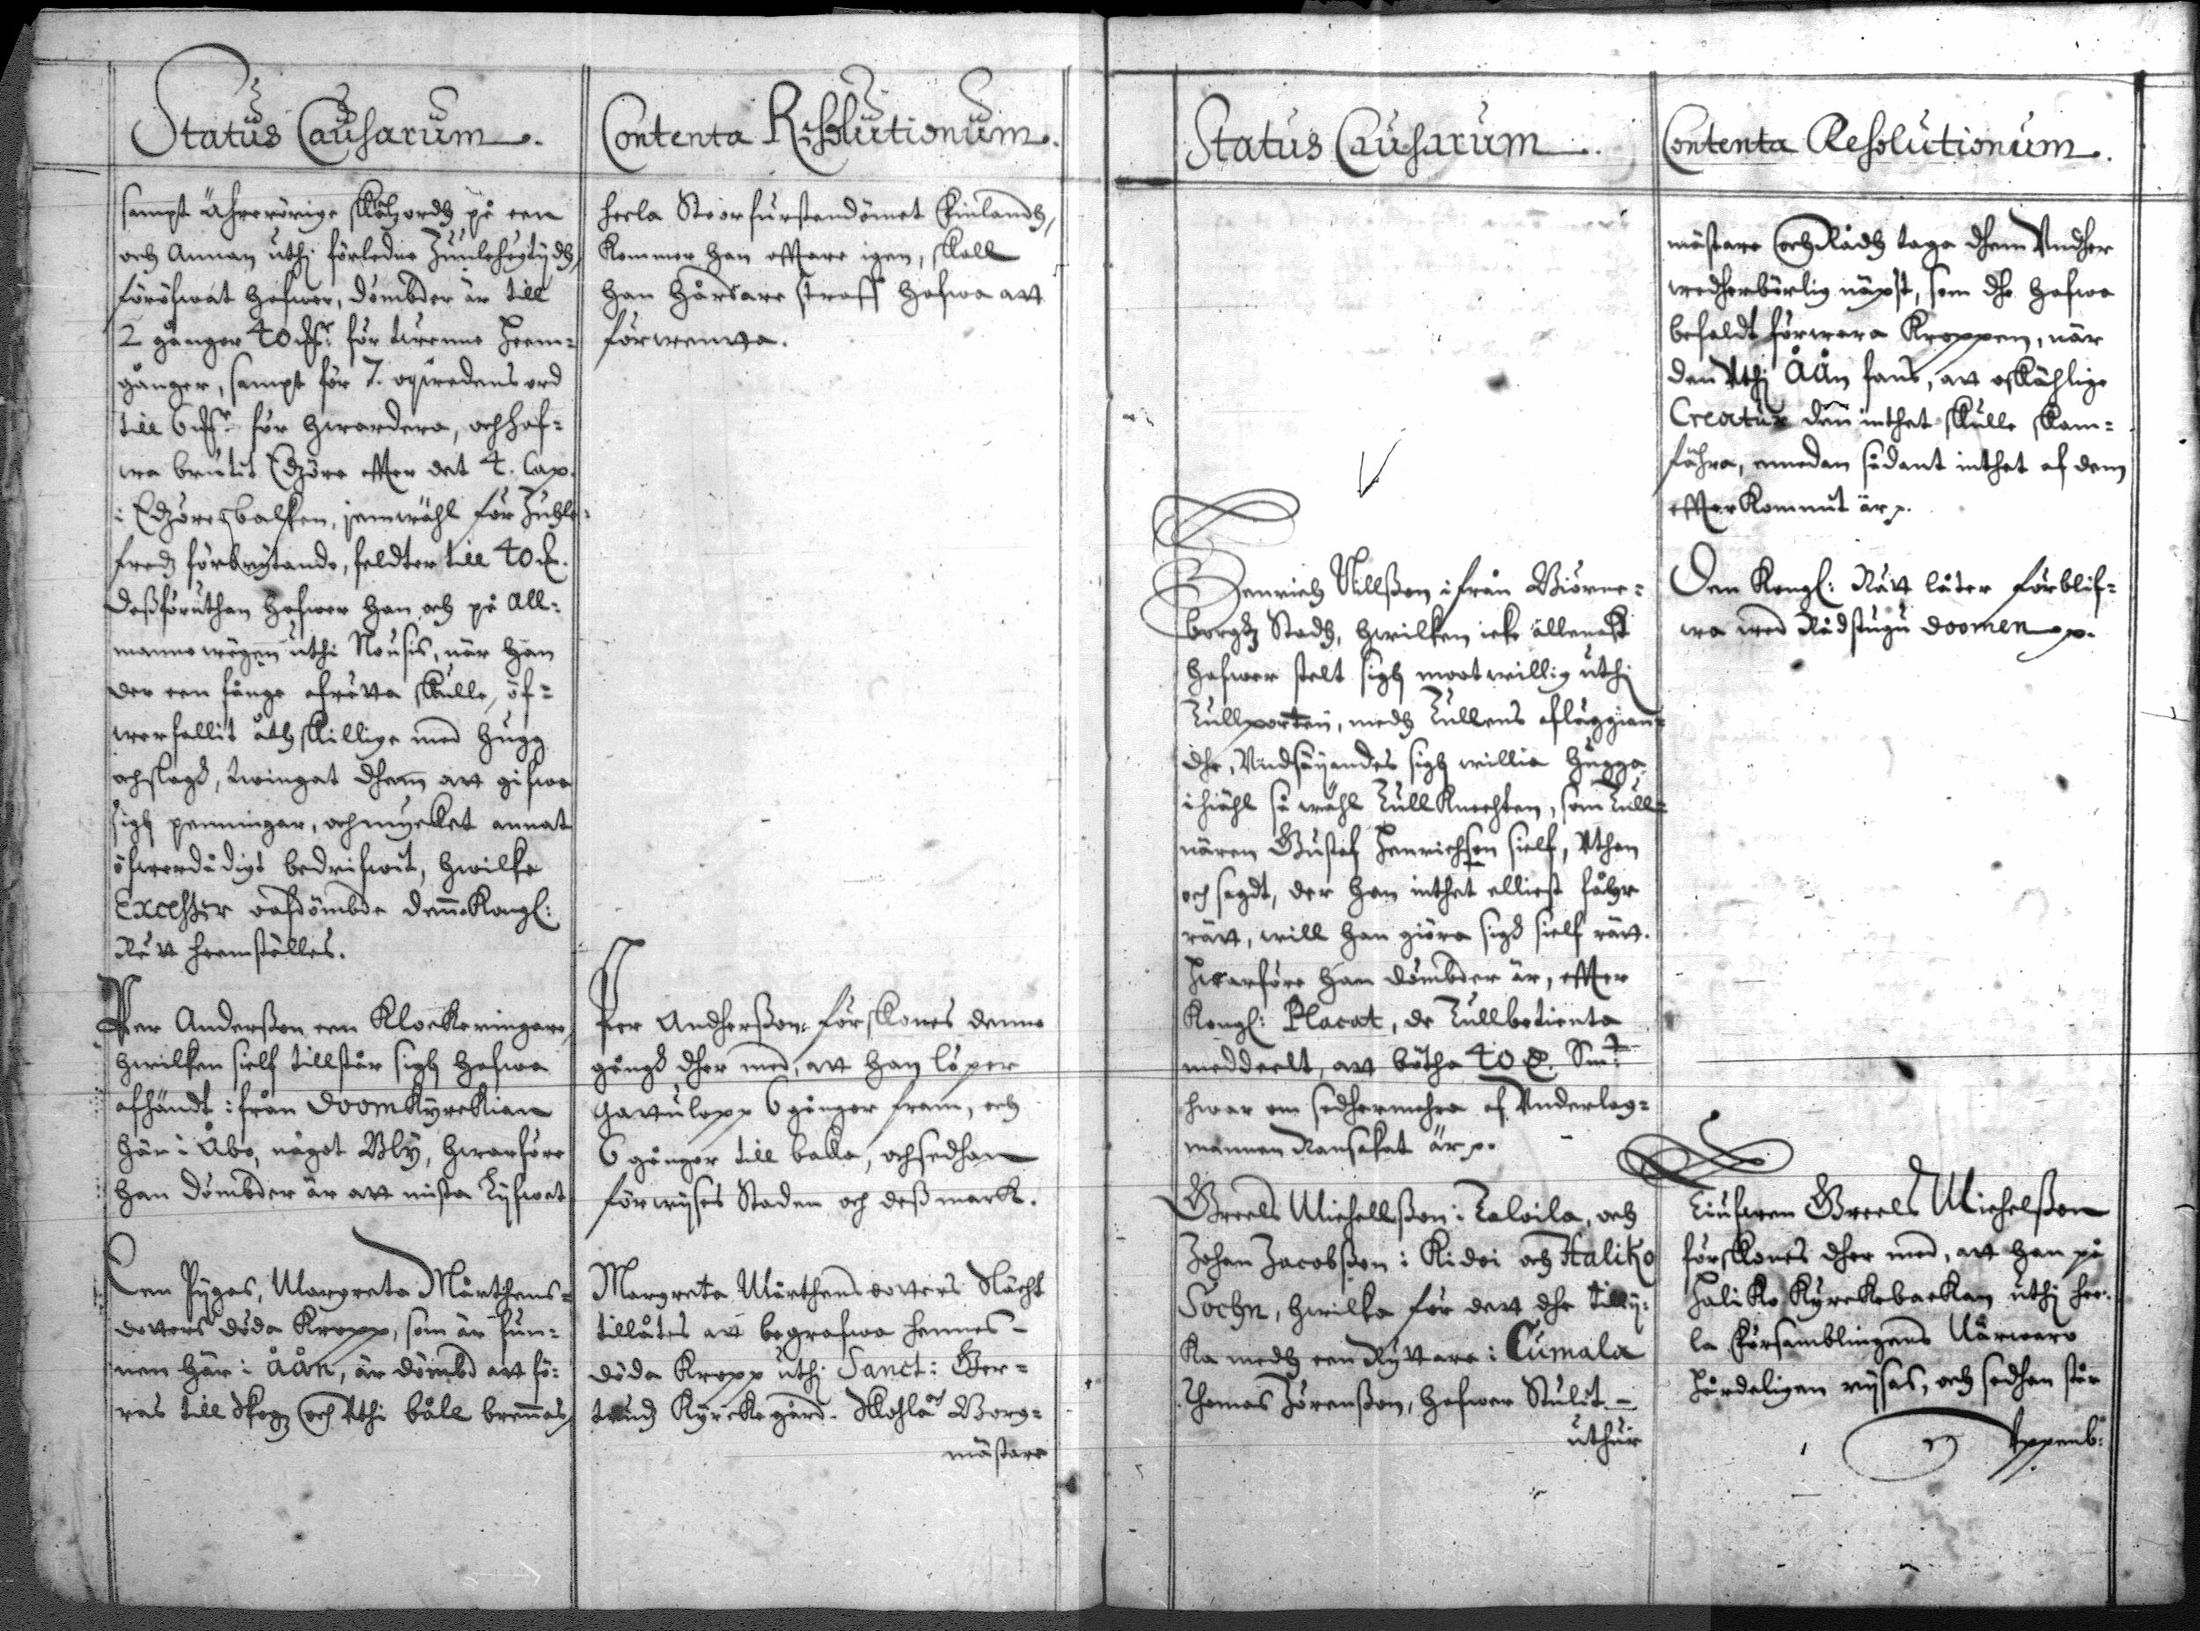 Status Causarum.
sampt ährerörige skälzordh på een
och annan uthi förledne Juuleheltijdh,
föröfwat hafwer, dömbder är till
2 gånger 40 för twenne Heem-
gånger, sampt för 7. oqwedens ord
till 6 för hwardera, och haf-
wa brutit Edzöre effter det 4. Cap.
i Edzöresbalken, jemwähl för Juhle-
fredz förbrytande, feldter till 40
Deßföruthan hafwer han och på all-
mannewägen uthi Nousis, när han
der een fånge afrätta skulle, öf-
werfallit åthskillige med hugg
och slagh, twingat dhem att gifwa
sigh penningar, och myckit annat
öfwerdådigt bedrifwit, hwilke
Excesser oafdömbde denne Kongl:
Rätt heemställes.
Per Anderßon een Klockeringare,
hwilken sielf tillstår sigh hafwa
afhändt ifrån Doomkyrckian
här i Åbo, något Bly, hwarföre
han dömbder är att mista Lijfwet
Een Pigas, Margreta Mårthens-
dotters döda Kropp, som är fun-
nen här i åån, är dömbd att fö-
ras till skogz och uthi båll brennas,
Contenta Resolutionum.
heela Stoorfurstendömet Finlandh,
Kommer han offtare igen, skall
han hårdare straff hafwa att
förwenta.
Per Andherßon förskones denne
gångh dher med, att han löper
Gatulopp 6 gånger fram, och
6 gånger till baka, och sedhan
förwijses Staden och deß mark.
Margreta Mårthensdotters Slächt
tillåtes att begrafwa hennes
döda Kropp uthi Sanct: Ger-
trudz Kyrckegård. Skohla och Borg-
mästare
Status Causarum.
Henrich Nillßon ifrån Biörne-
borghz Stadh, hwilken icke allenast
hafwer stelt sigh mootwillig uthi
Tullporten, medh Tullens afläggian-
dhe, Undsäyandes sigh willia hugga
ihiähl så wähl Tull Knechten, som Tull-
nären Gustaf Henrichson sielf, Uthan
och sagdt, der han inthet elliest fåhr
rätt, will han giöra sigh sielf rätt.
Hwarföre han dömbder är, effter
Kongl: Placat, de Tullbetienta
meddeelt, att bötha 40 D. Smt:
hwar om sedhermehra af Underlag-
mannen Ransakat är p.
Greels Michellßon i Taloila, och
Johan Jacobßon i Kidoi och Haliko
Sochn, hwilka för dett dhe
ka medh een Ryttare i Cumala
Thomas Jörenßon, hafwer Stulit
uthur
Contenta Resolutionum.
mästare och Rådh taga dhem Undher
wedherbörlig näpst, som dhe hafwa
befaldt förwara Kroppen, när
den uthi åån fans, att oskählige
Creatur den inthet skulle skam-
föhra, emedan sådant inthet af dem
effterkommit är p.
Den Kongl: Rätt låter förblif-
wa wed Rådstugu doomen p.
Tiufwen Greels Michelßon
förskones dher med, att han på
Haliko Kyrckebackan uthi hee-
la Församblingens Närwaro
Hårdeligen rijses, och sedhan står
Uppenb: